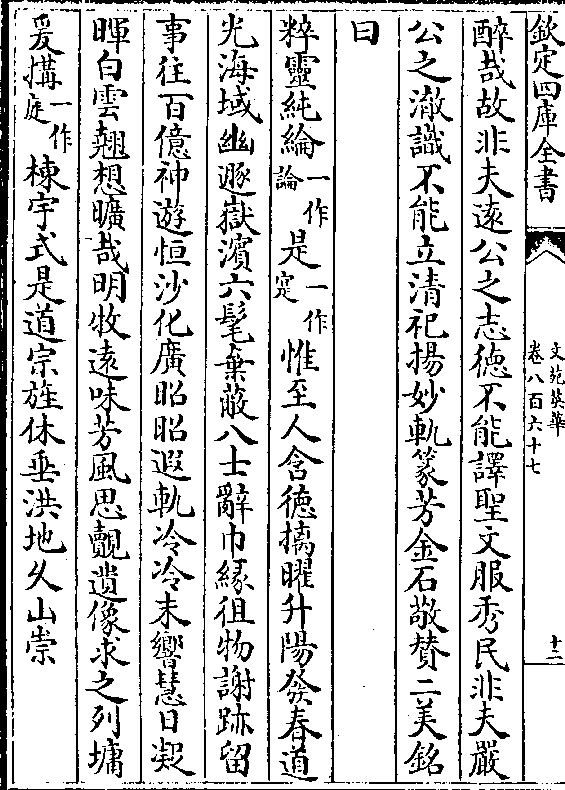 欽定四庫全書
文苑英華
卷八百六十七
十二
醉哉故非夫遠公之志德不能譯聖文服秀民非夫嚴
公之澈識不能立清祀揚妙軌篆芳金石敬賛二美銘
曰
粹靈純綸一作論是一作寔惟至人含德摛曜升陽發春道
光海域幽遯嶽濵六髦棄蔽八士辭巾緣徂物謝跡留
事往百億神遊恒沙化廣昭昭遐軌冷冷末響慧日凝
暉白雲翹想曠哉明牧遠味芳風思覿遺像求之列墉
爰搆一作庭棟宇式是道宗旌休垂洪地久山崇